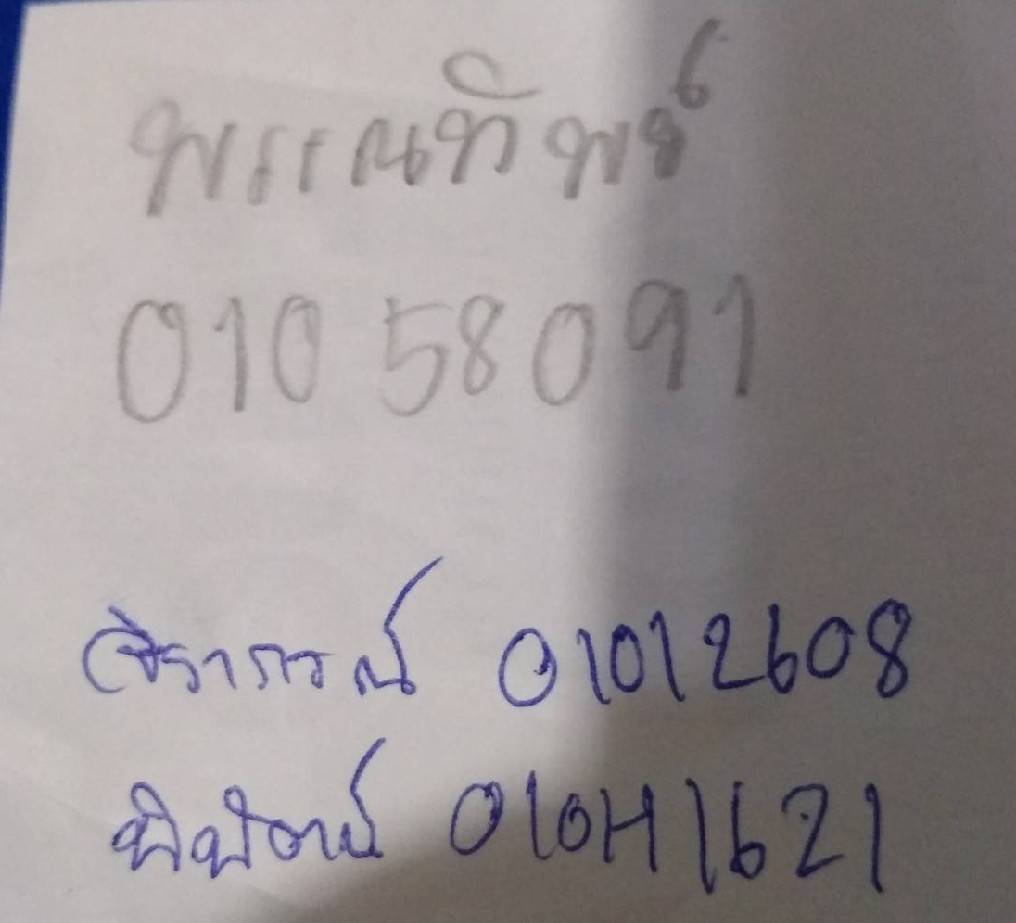 พรรณทิพย์
01058091
จิราภรณ์ 01012608
พิพัฒน์ 01041621